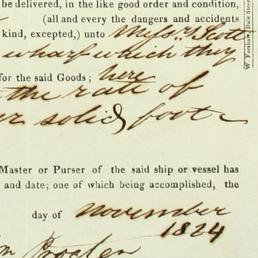 be delivered, in the like good order and condition,
(all and every the dangers and accidents
kind, excepted,) unto Messrs. Scott
wharf which they
for the said Goods; here
the rate of
solid foot
Master or Purser of the said ship or vessel has
and date; one of which being accomplished, the
day of November
1824
Procter